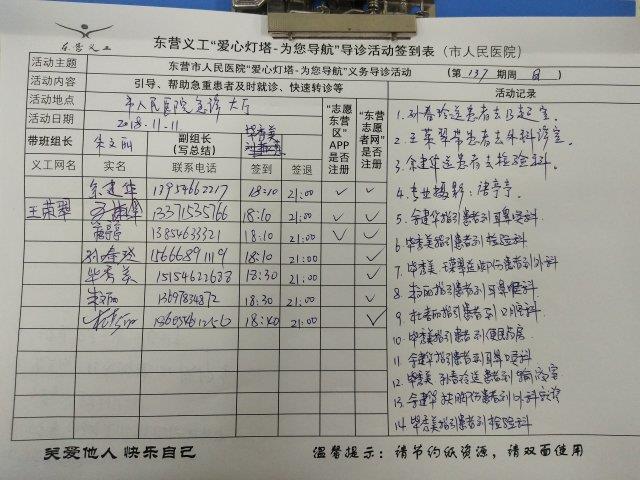 东营义工
东营义工“爱心灯塔-为您导航”导诊活动签到表（市人民医院）
活动主题 东营市人民医院“爱心灯塔-为您导航”义务导诊活动 （第137期周日）
活动内容 引导、帮助急重患者及时就诊、快速转诊等
活动记录
活动地点 市人民医院急诊大厅
活动日期 2018.11.11
带班组长 朱文丽 副组长（写总结） 毕秀美
“志愿东营区”APP是否注册
“东营志愿者网”是否注册
义工网名 实名 联系电话 签到 签退
余建华 13954662217 18:10 21:00 ✓ ✓
王荣翠 13371535766 18:10 21:00 ✓ ✓
13854633321 18:10 21:00 ✓ ✓
孙春玲 15666891119 18:10 21:00 ✓
毕秀美 15154622688 18:30 21:00 ✓
朱文丽 13697834872 18:30 21:00 ✓
18:40 21:00 ✓
1. 孙春玲送患者去B超室.
2. 王荣翠带患者去外科诊室.
3. 余建华送患者去检验科.
4. 专业摄影：
5. 余建华指引患者到耳鼻喉科
6. 毕秀美指引患者到检验科
7. 毕秀美 王荣翠 患者到外科
8. 朱文丽指引患者到耳鼻喉科
9. 指引患者到口腔科.
10. 毕秀美指引患者到便民药房
11. 余建华指引患者到耳鼻喉科
12. 毕秀美 孙春玲送患者到输液室
13. 余建华扶脚伤患者到外科
14. 毕秀美指引患者到检验科
关爱他人 快乐自己
温馨提示：请节约纸资源，请双面使用